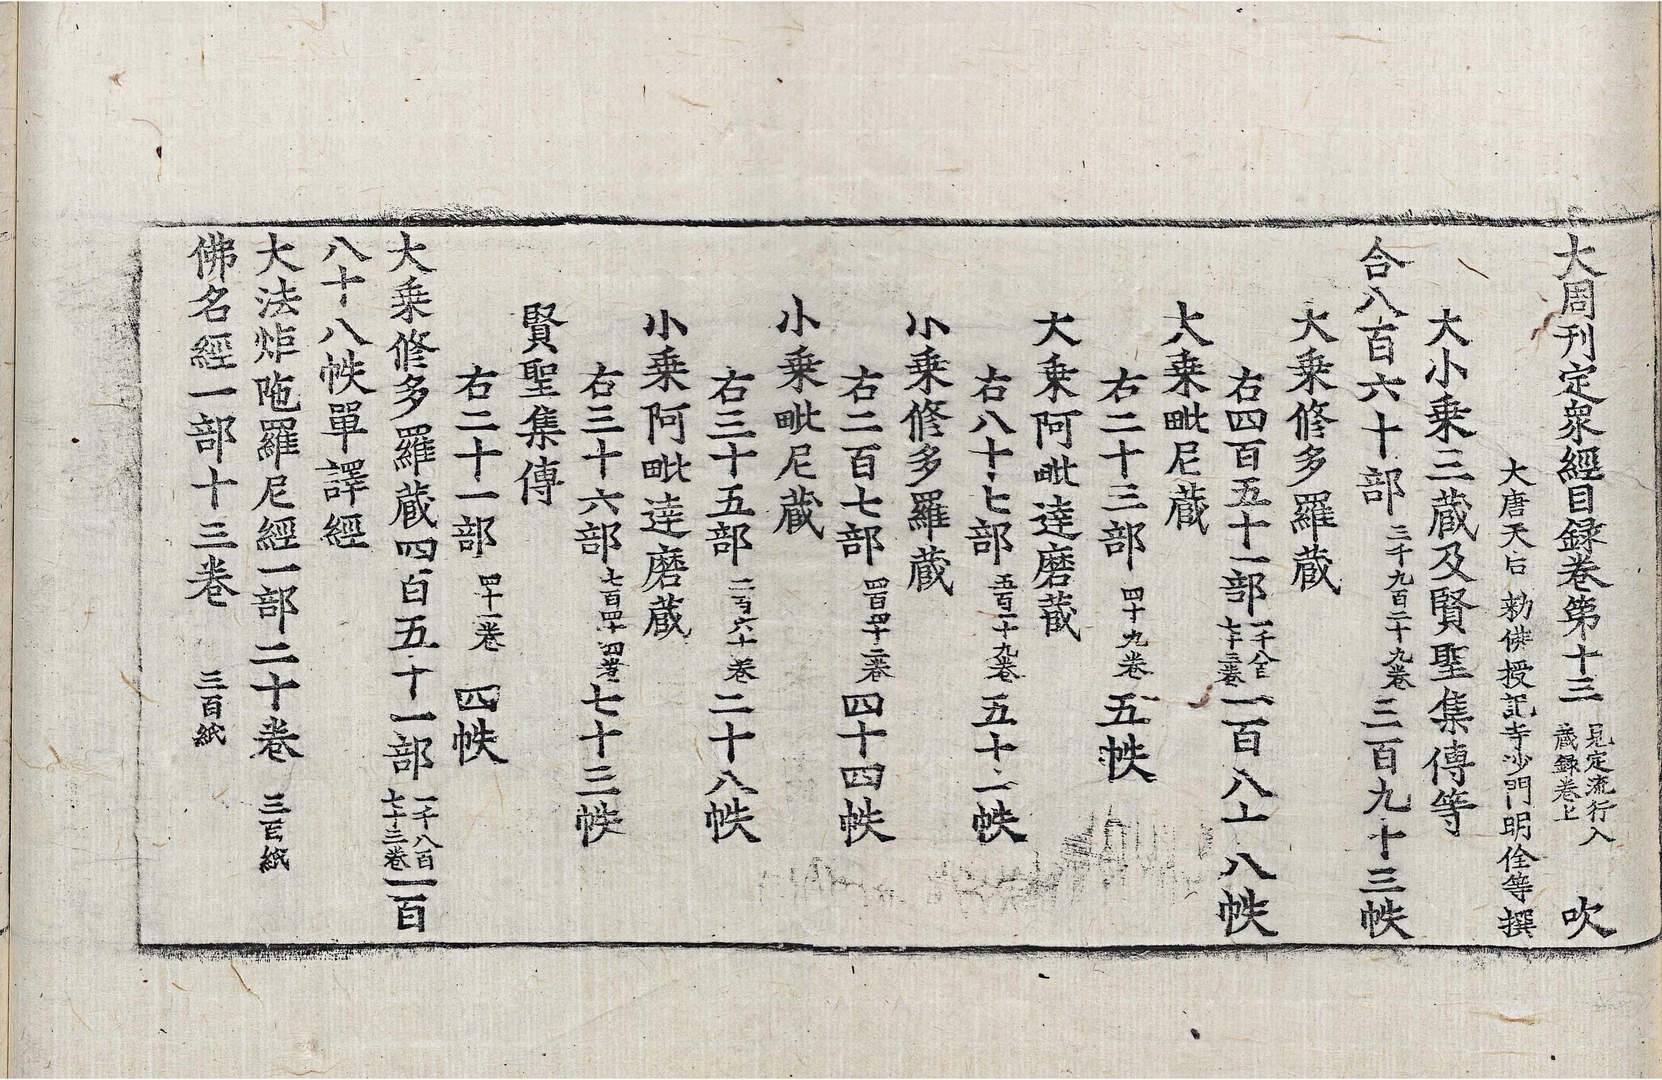 大周刊定衆經目録卷第十三 見定流行入藏録卷上 吹
大唐天后勑佛授記寺沙門明佺等撰
大小乗三蔵及賢聖集傳等
合八百六十部 三千九百二十九卷 三百九十三帙
大乗修多羅蔵
右四百五十一部 一千八百七十三卷 一百八十八帙
大乗毗尼蔵
右二十三部 四十九卷 五帙
大乗阿毗逹磨蔵
右八十七部 五百一十九卷 五十二帙
小乗修多羅蔵
右二百七部 四百四十二卷 四十四帙
小乗毗尼蔵
右三十五部 二百六十卷 二十八帙
小乗阿毗逹磨蔵
右三十六部 七百四十四卷 七十三帙
賢聖集傳
右二十一部 四十一卷 四帙
大乗修多羅蔵四百五十一部 一千八百七十三卷 一百
八十八帙單譯經
大法炬陁羅尼經一部二十卷 三百紙
佛名經一部十三卷 三百紙